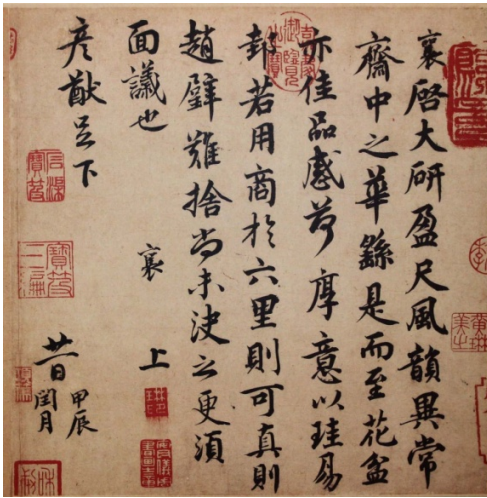 襄啓大研盈尺風韻異常
齋中之華繇是而至花盆
亦佳品感荷厚意以珪易
邽若用商於六里則可真則
趙璧難捨尚未决之更須
面議也
襄上
彥猷足下
廿一日甲辰閏月
黃琳美之